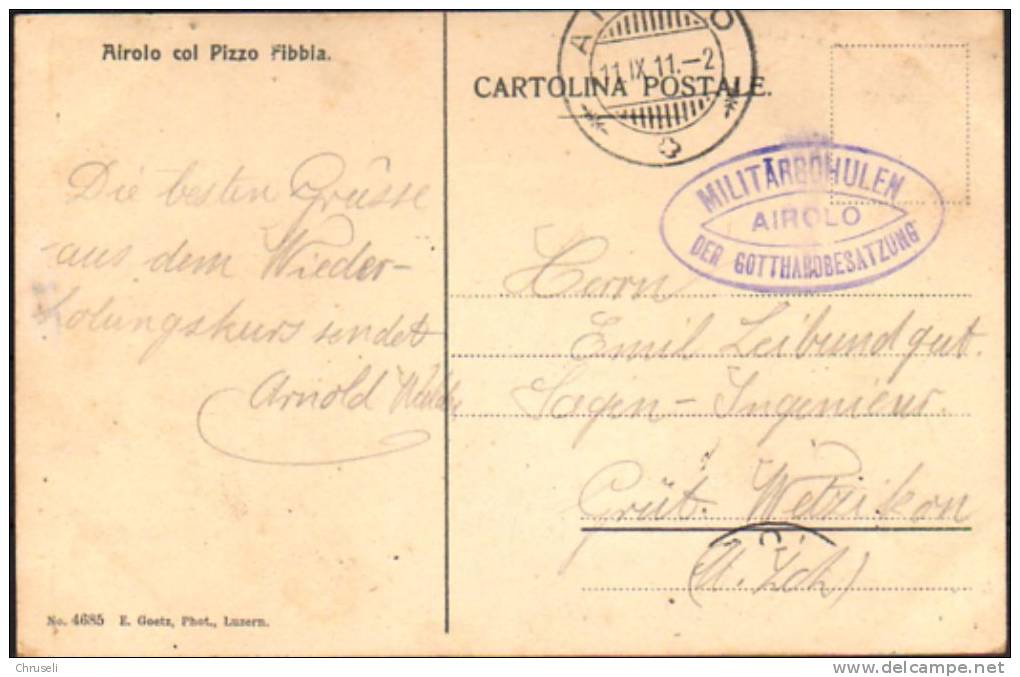 Airolo col Pizzo Fibbia.
CARTOLINA POSTALE.
11.IX.11.-2
MILITÄRSCHULEN
AIROLO
DER GOTTHARDBESATZUNG
Die besten Grüsse
aus dem Wieder-
holungskurs sendet
Arnold
Herrn
Emil Leibundgut.
Sagen-Ingenieur.
Grüt. Wetzikon
(Kt. Zch)
No. 4685 E. Goetz, Phot., Luzern.
Chruseli
www.delcampe.net